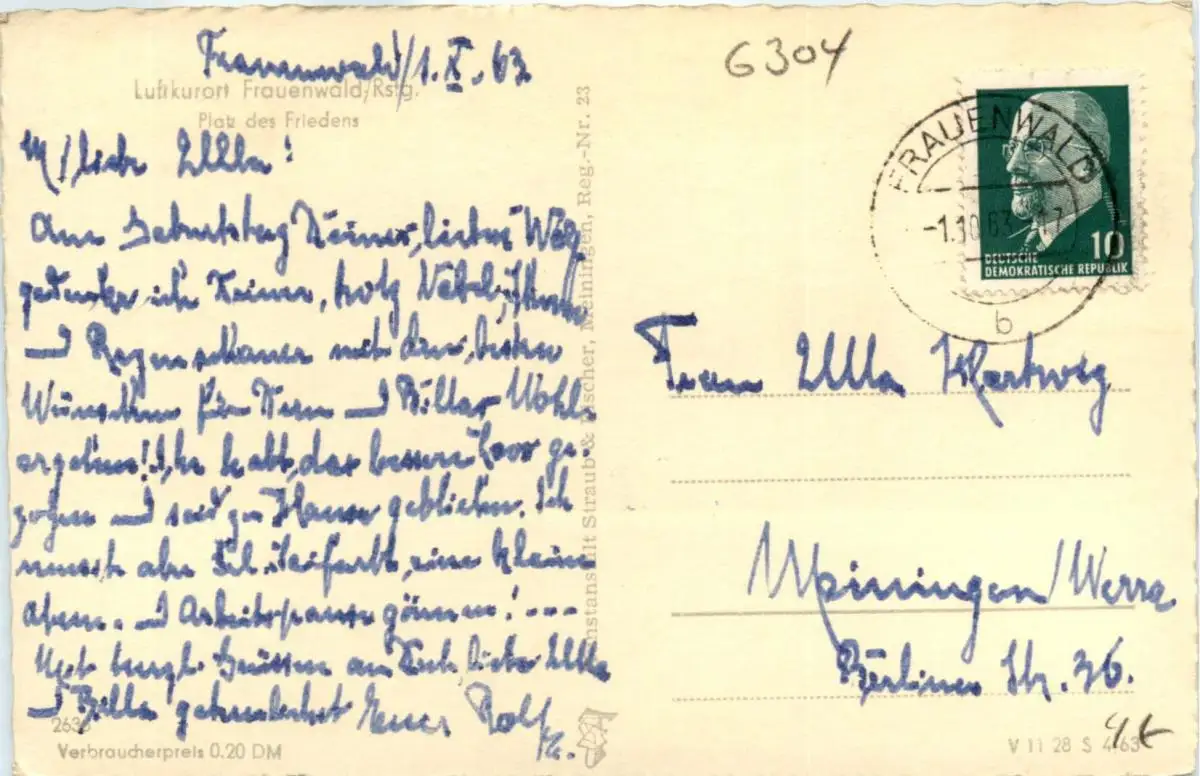 Frauenwald/1.X.63
Luftkurort Frauenwald/Rstg.
Platz des Friedens
M/liebe Ulla!
Am Geburtstag Deines lieben
gedenke ich Deiner, trotz Nebel,
und Regenschauer mit den besten
Wünschen für Dein und Billas Wohl-
ergehen! Ihr habt das bessere Los ge-
zogen und seid zu Hause geblieben. Ich
musste eine kleine
Atem- und Arbeitspause gönnen! ---
Mit herzl. Grüssen an Euch, liebe Ulla
und Billa Euer Rolf
263
Verbraucherpreis 0.20 DM
Meiningen, Reg.-Nr. 23
G304
FRAUENWALD
-1.10.63 17
b
10
DEUTSCHE
DEMOKRATISCHE REPUBLIK
Frau Ulla Hertwig
Meiningen/Werra
Berliner Str. 36.
V 11 28 S 4/63